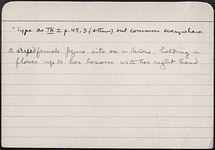 Type as TK I p. 49, 3 (Athens) but common everywhere.
A draped female figure sits on a throne, holding a
flower up to her bosom with her right hand.